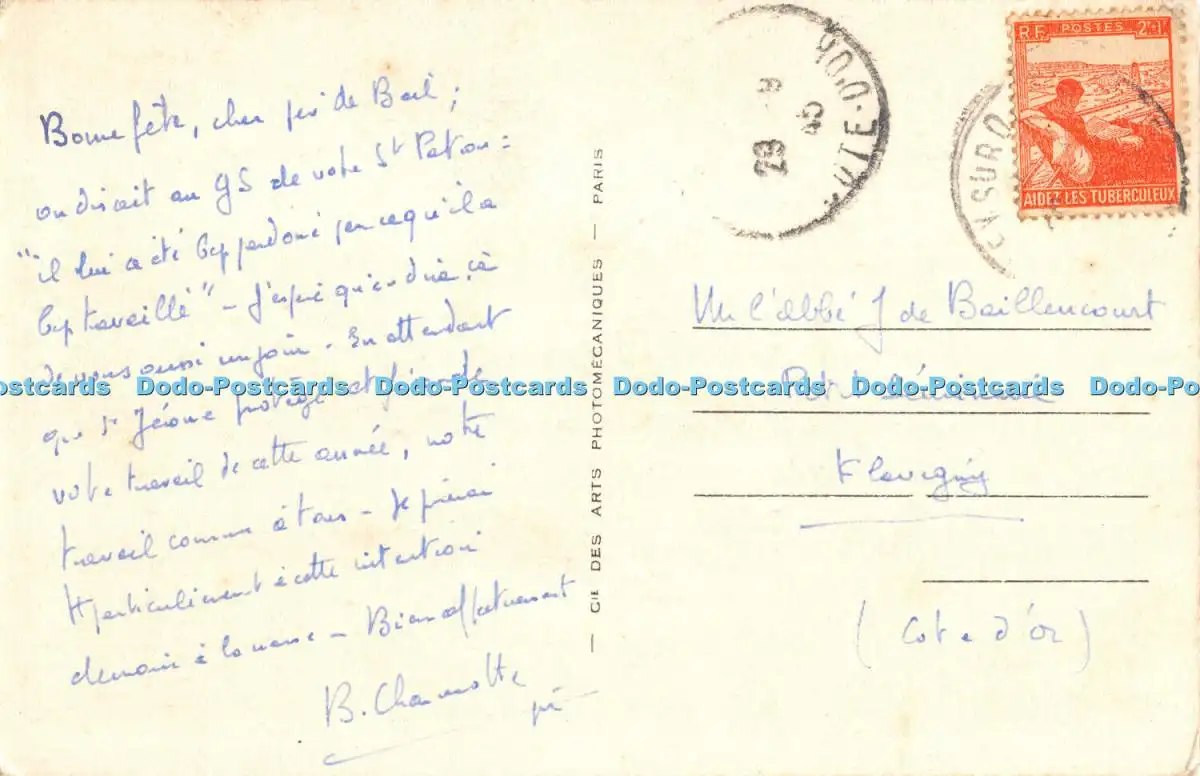 Bonne fête, cher de Bail ;
on disait au GS de votre St Patron :
"il lui a été bcp pardonné parce qu'il a
bcp travaillé" – J'espère qu'on dira ça
de vous aussi un jour. En attendant
que St Jérôme protège et féconde
votre travail de cette année, notre
travail commun à tous – Je prierai
particulièrement à cette intention
demain à la messe – Bien affectueusement
B. Chamotte
— CIE DES ARTS PHOTOMÉCANIQUES — PARIS
29 9 45
D'OR
R.F. POSTES 2F+1F
AIDEZ LES TUBERCULEUX
l'abbé J de Baillencourt
Petit Séminaire
Flavigny
(Cote d'or)
Dodo-Postcards Dodo-Postcards Dodo-Postcards Dodo-Postcards Dodo-Postcards Dodo-Postcards